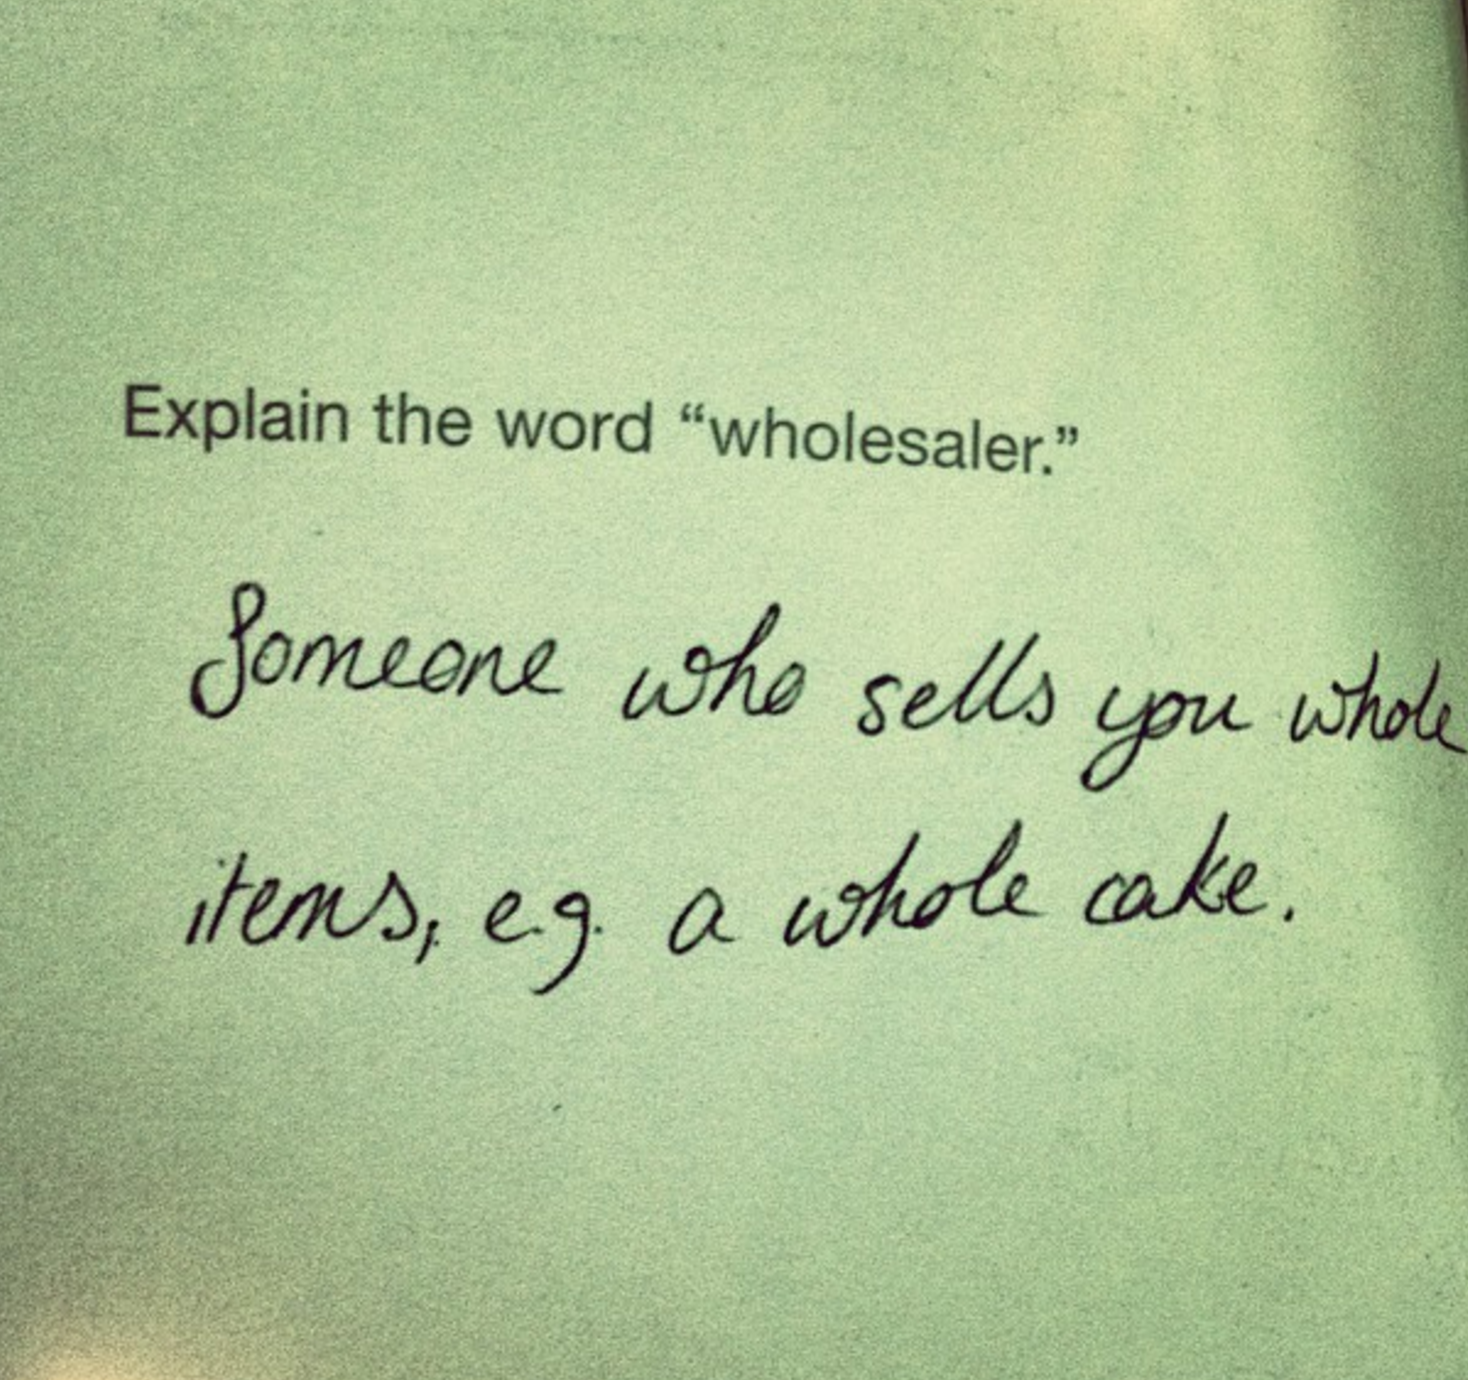 Explain the word “wholesaler.”
Someone who sells you whole
items, e.g. a whole cake.